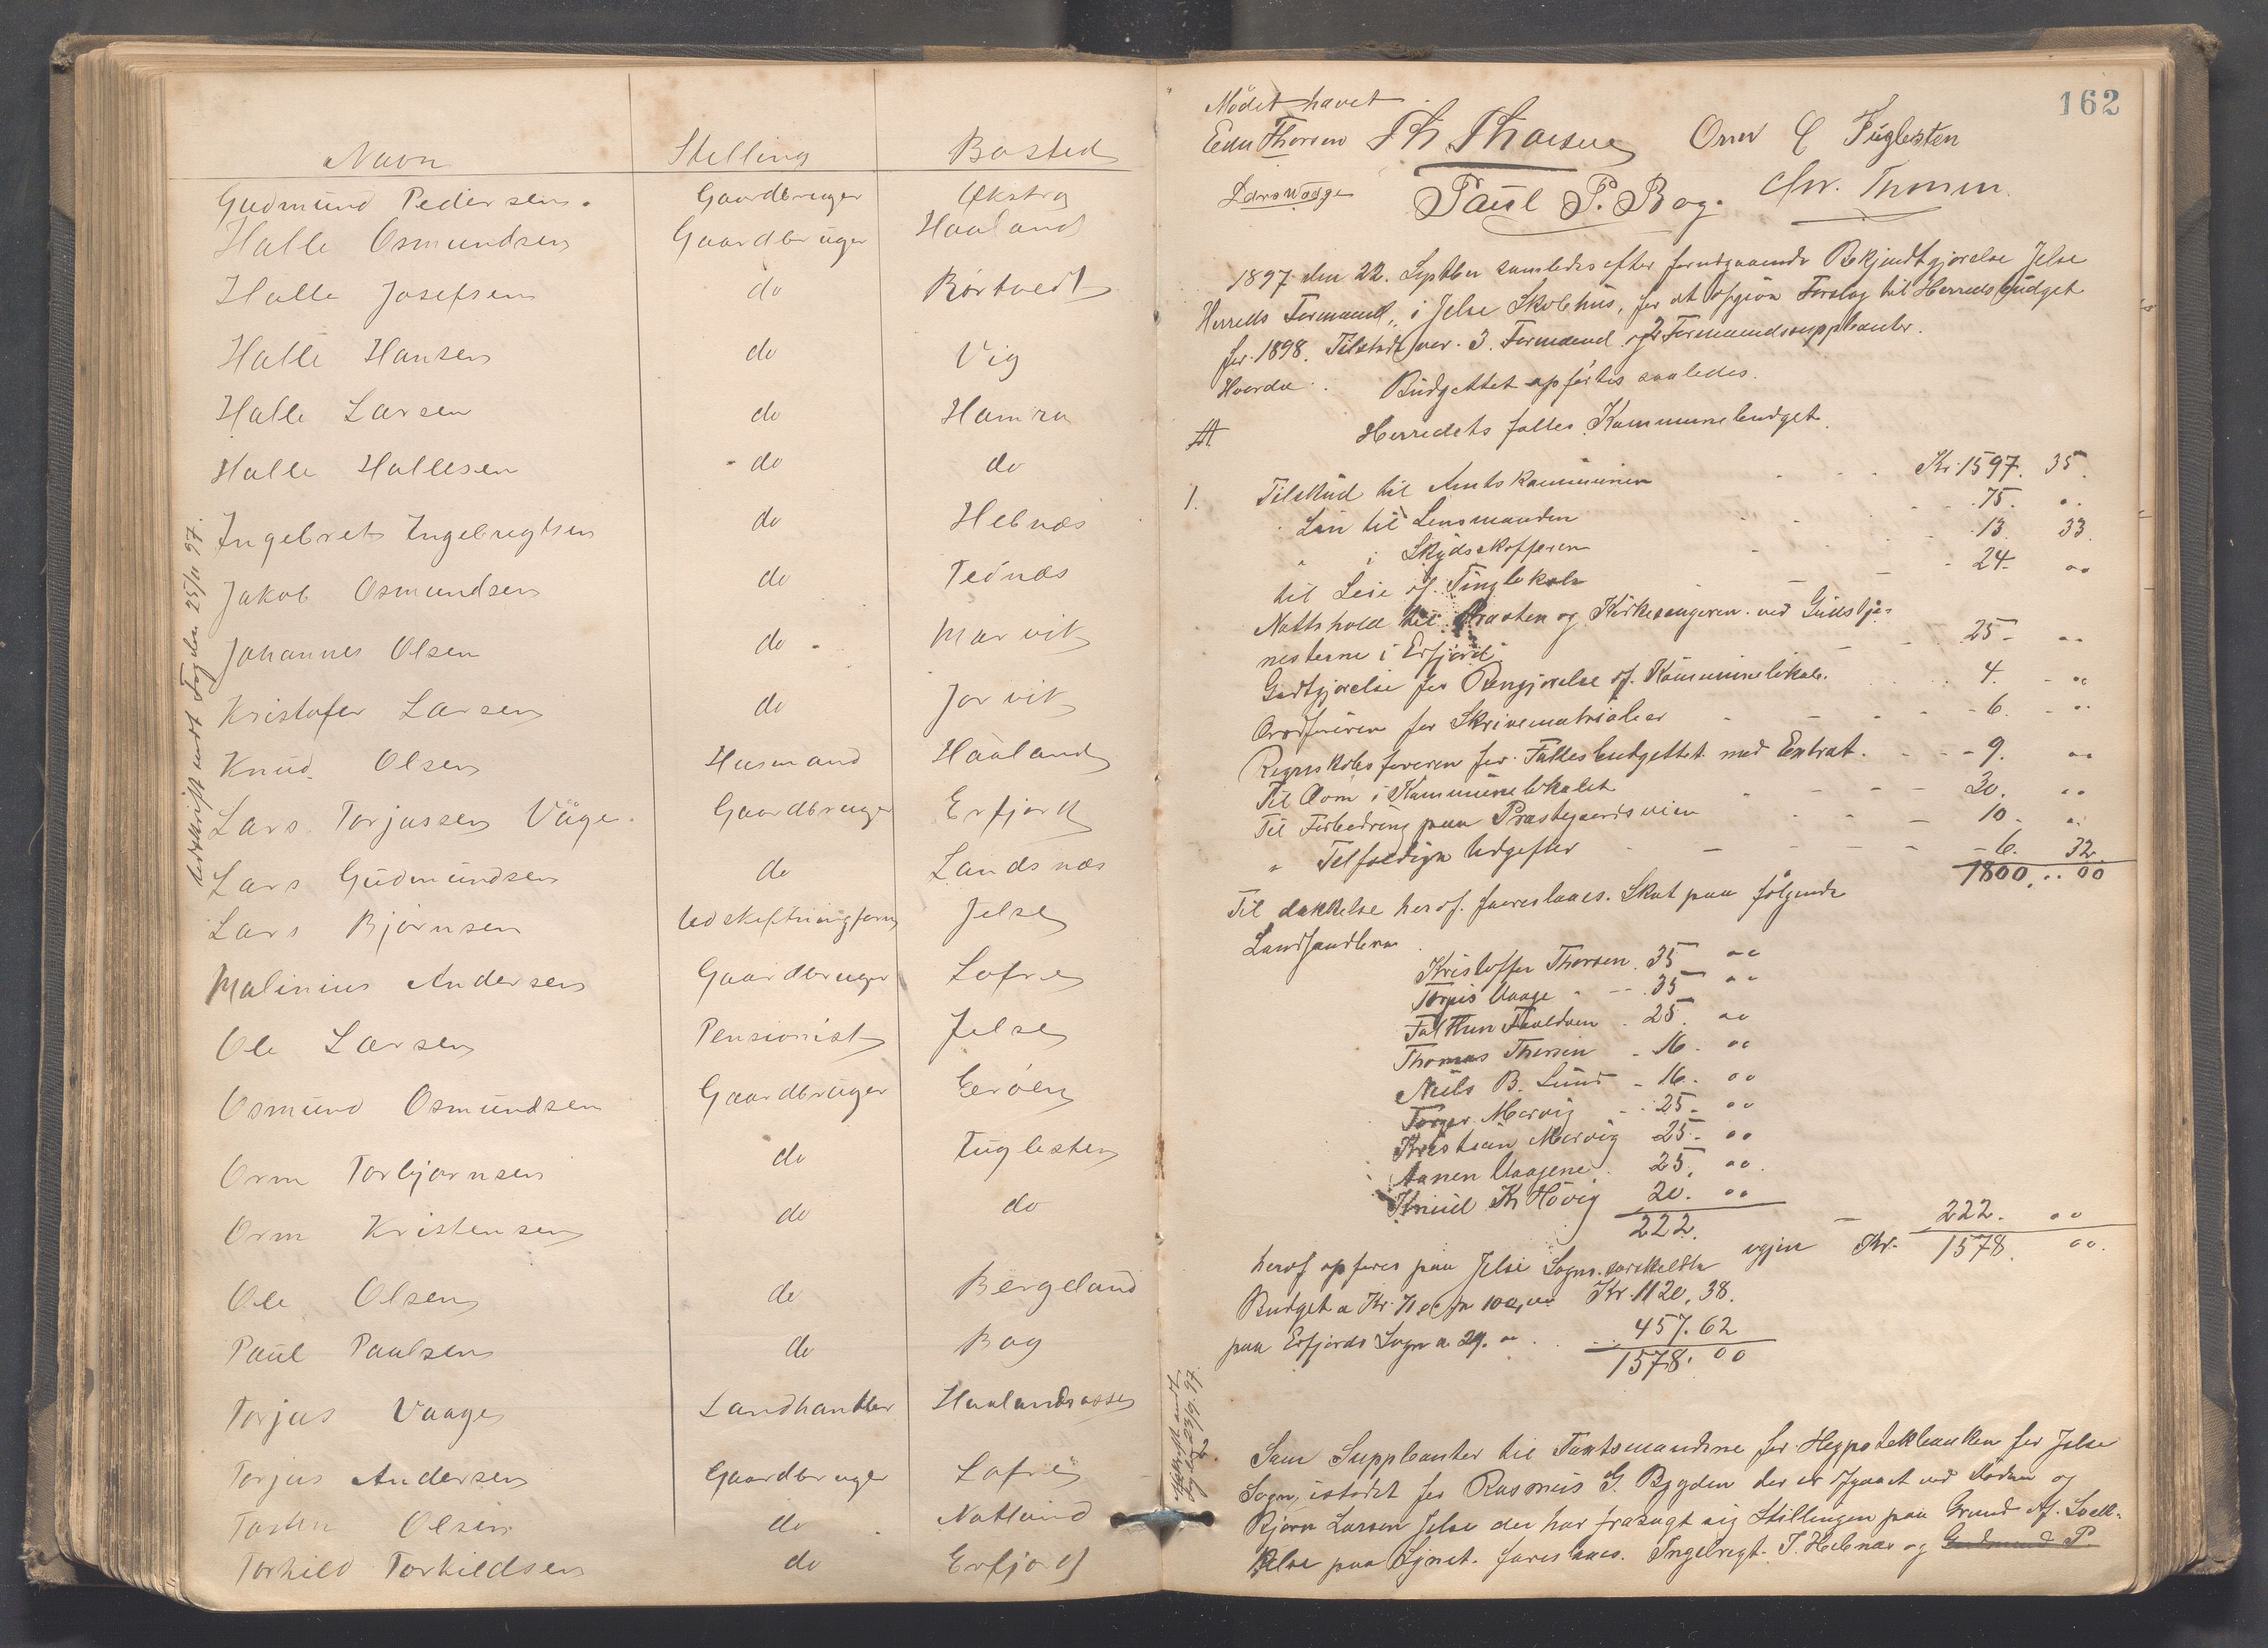 Navn Stelling Bosted
Gudmund Pedersen. Gaardbruger Økstra
Halle Osmundsen Gaardbruger Haaland
Halle Josefsen do Børtvedt
Halle Hansen do Vig
Halle Larsen do Hamra
Halle Hallesen do do
Ingebret Ingebregtsen do Hebnæs
Jakob Osmundsen do Tednæs
Johannes Olsen do Marvik
Kristofer Larsen do Jorvik
Knud Olsen Husmand Haaland
Lars Torjussen Våge. Gaardbruger Erfjord
Lars Gudmundsen do Landsnæs
Lars Bjørnsen Udskiftningform Jelse
Malinius Andersen Gaardbruger Lofre
Ole Larsen Pensionist Jelse
Osmund Osmundsen Gaardbruger Eeröen
Orm Torbjørnsen do Fuglesten
Orm Kristensen do do
Ole Olsen do Bergeland
Paul Paulsen do Bog
Torjus Vaage Landhandler Haalandsosse
Torjus Andersen Gaardbruger Lofre
Tosten Olsen do Natland
Torkild Torkildsen do Erfjord
Udskrift sendt Fogden 25/11 97.
162
Mødet hævet
Edu Thorsen Th Thorsen Orm C Fuglesten
Lars Waage Paul P. Bog. Chr. Thomsen.
1897 den 22. Septber samledes efter forudgaaende Bekjendtgjørelse Jelse
Herreds Formænd, i Jelse Skolehus, for at opgjøre Forslag til Herredsbudget
for 1898. Tilstede var 3 Formænd og 2 Formandssuppleanter.
Hvorda Budgettet opførtes saaledes.
A Herredets fælles Kommunebudget.
1. Tilskud til Amtskommunen Kr. 1597. 35.
Løn til Lensmanden 75. 00
" " Skydsskafferen 13. 33.
til Leie af Tinglokale 24. 00
Natthold til Præsten og Kirkesangeren ved Gudstje-
nesterne i Erfjord 25 - 00
Godtgjørelse for Rengjørelse af Kommunelokale. 4. 00
Ordføreren for Skrivematrialier 6. 00
Regnskabsføreren for Fællesbudgettet med Extrat. 9. 00
Til Ovn i Kommunelokalet 30. 00
Til Forbedring paa Præstegaardsveien 10. 00
" Tilfældige Udgifter 6. 32.
1800. 00
Til dækkelse heraf foreslaaes Skat paa følgende
Landhandlere
Kristoffer Thorsen. 35 00
Torjus Vaage 35 00
Thomas Thorsen 16. 00
Niels B. Lund 16. 00
Torger Marvig 25. 00
Kristian Marvig 25. 00
Aanen Vaagene 25. 00
Knud K Høvig 20. 00
222. 222. 00
igjen Kr. 1578. 00.
heraf opføres paa Jelse Sogns særskildte
Budget a Kr. 71 00 pr 100,00 Kr. 1120, 38.
paa Erfjords Sogn a 29. 00 457. 62
1578. 00
Udskrift sendt
Fogden 23/9. 97.
Som Suppleanter til Taxtsmændene for Hypotekbanken for Jelse
Sogn, istedet for Rasmus G. Bygden der er afgaaet ved Døden og
Bjørn Larsen Jelse der har frasagt sig Stillingen paa Grund af Svæk-
kelse paa Synet. foreslaaes. Ingebregt I. Hebnæs og Gudmund P.